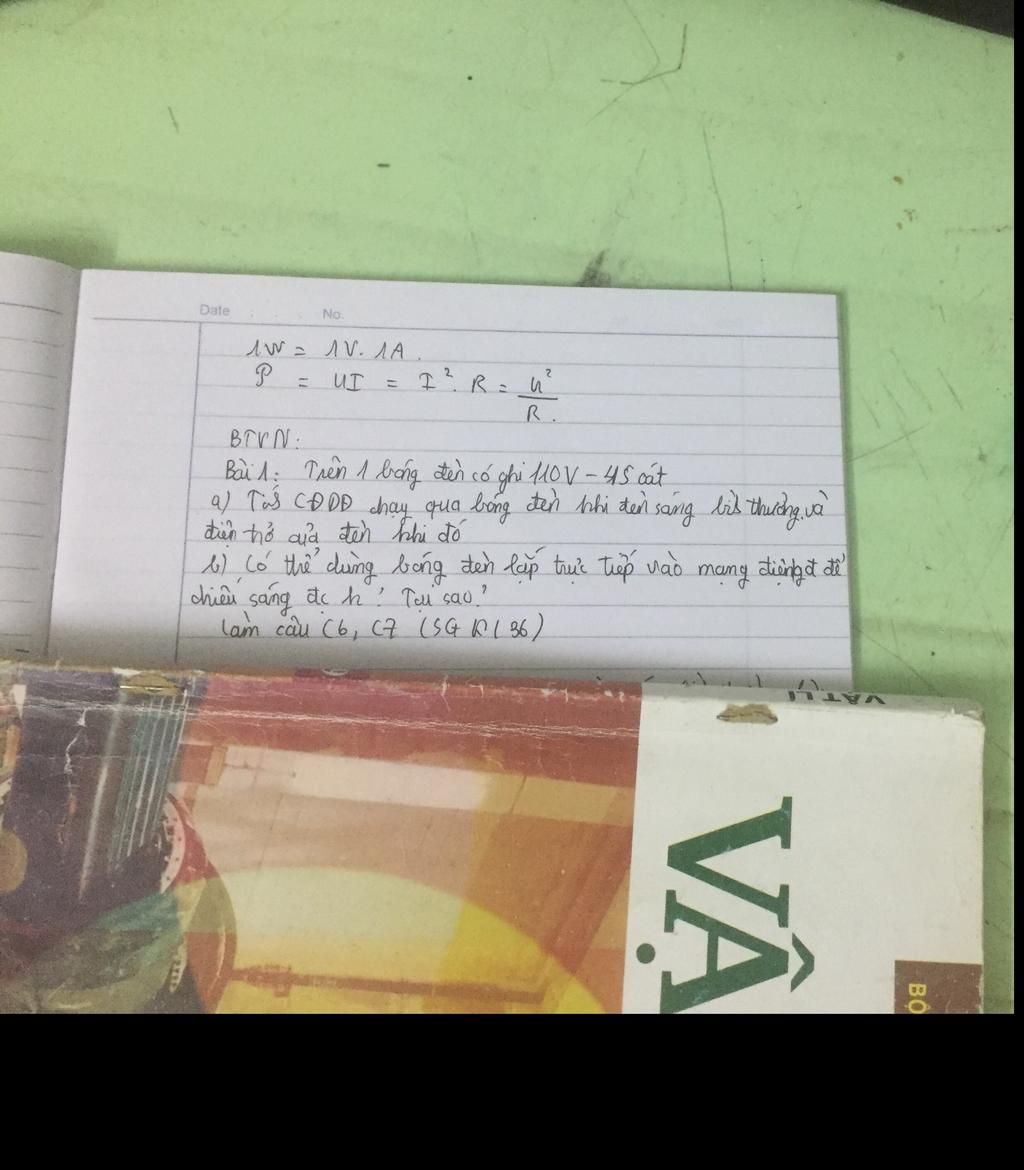 Date : . : No.
1W = 1V. 1A.
P = UI = I². R = U²/R.
BTVN:
Bài 1: Trên 1 bóng đèn có ghi 110V - 45 oát
a) Tís CĐDĐ chạy qua bóng đèn khi đèn sáng bìs thường. và
điện trở của đèn khi đó
b) Có thể dùng bóng đèn lắp trực tiếp vào mạng điện để
chiếu sáng đc k? Tại sao?
Làm câu C6, C7 (SGK/36)
VẬT LÍ
VẬ
BỘ